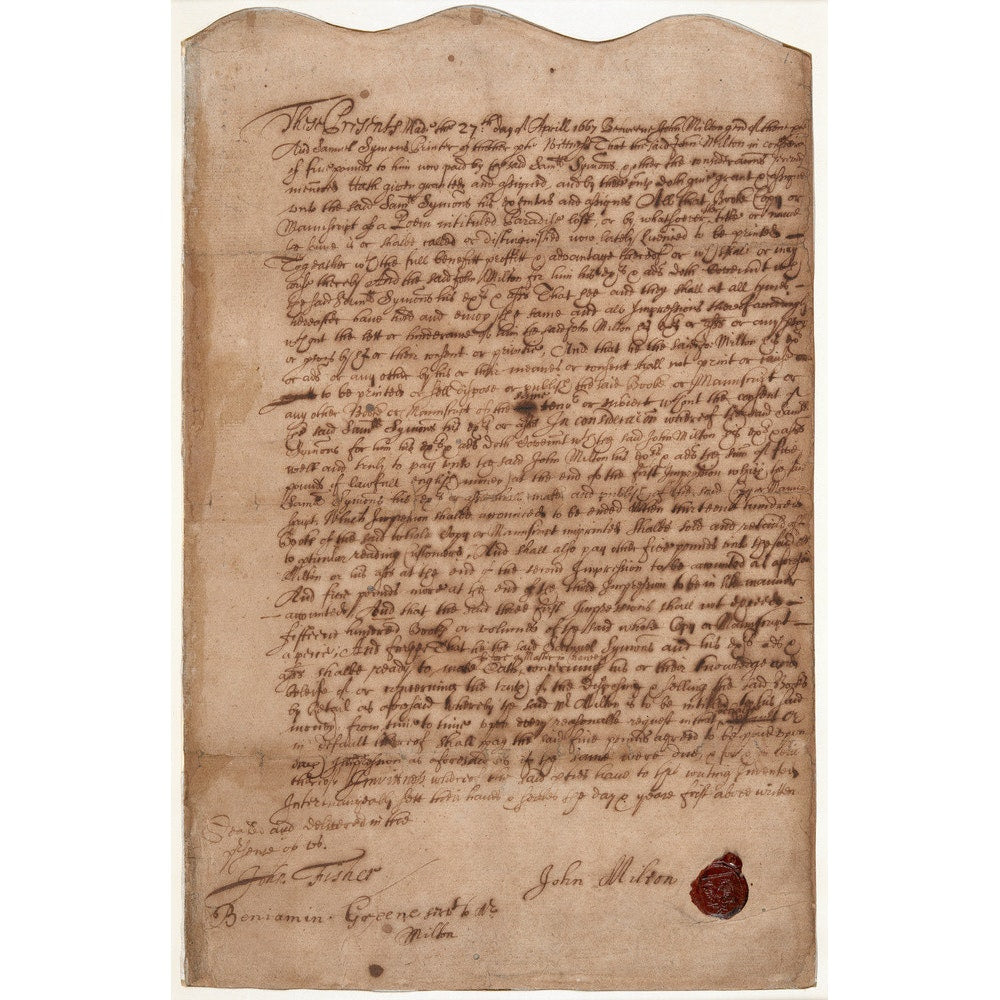 These Presents Made the 27th day of Aprill 1667 Betweene John Milton gent of thone pte
And Samuel Symons Printer of thother pte Witness That the said John Milton in consideracon
of five pounds to him now paid by the said Samll Symons & other the consideracons herein
mencoed Hath given granted and assigned, and by these pnts doth give grant & assigne
unto the said Samll Symons his executors and assignes All that Booke Copy or
Manuscript of a Poem intituled Paradise lost, or by whatsoever other title or name
the same is or shalbe called or distinguished now lately Licensed to be printed
Together wth the full benefitt proffitt & advantage thereof or wch shall or may
arise thereby And the said John Milton for him his exrs & ads doth Covenant wth
the said Samll Symons his exrs & asss That hee and they shall at all tymes
hereafter have hold and enjoy the same and all Impressions thereof accordingly
wthout the lett or hinderance of him the said John Milton his exrs or asss or any pson
or psons by his or their consent or privitie. And that he the said Jo: Milton his exrs
or ads or any other by his or their meanes or consent shall not print or cause
to be printed or sell dispose or publish the said Booke or Manuscript or
any other Booke or Manuscript of the same tenor or subject wthout the consent of
the said Samll Symons his exrs or asss In consideracon whereof the said Samll
Symons for him his exrs & ads doth Covenant wth the said John Milton his exrs & asss
well and truly to pay unto the said John Milton his exrs & ads the sum of five
pounds of lawfull english money at the end of the first Impression which the said
Samll Symons his exrs or asss shall make and publish of the said Copy or Manu-
script, Which Impression shalbe accounted to be ended when thirteene hundred
Books of the said whole Copy or Manuscript imprinted shalbe sold and retailed off
to pticular reading Customers. And shall also pay other five pounds unto the said Mr
Milton or his asss at the end of the second Impression to be accounted as aforesaid
And five pounds more at the end of the third Impression to be in like manner
accounted And that the said three first Impressions shall not exceed
fifteene hundred Books or volumes of the said whole Copy or Manuscript
a peice. And further That he the said Samuel Symons and his exrs ads &
asss shalbe ready to make Oath before a Master in Chancery concerning his or their knowledge and
beleife of or concerning the truth of the disposing & selling the said Books
by Retail as aforesaid whereby the said Mr Milton is to be intitled to his said
money from time to time upon every reasonable request in that behalf or
in default thereof shall pay the said five pounds agreed to be paid upon
each Impression as aforesaid as if the same were due, & for & in lieu
thereof In witness whereof the said pties have to this writing Indented
Interchangeably sett their hands & seales the day & yeare first above written
Sealed and delivered in the
psence of us.
John Fisher
John Milton
Beniamin Greene servt to Mr
Milton